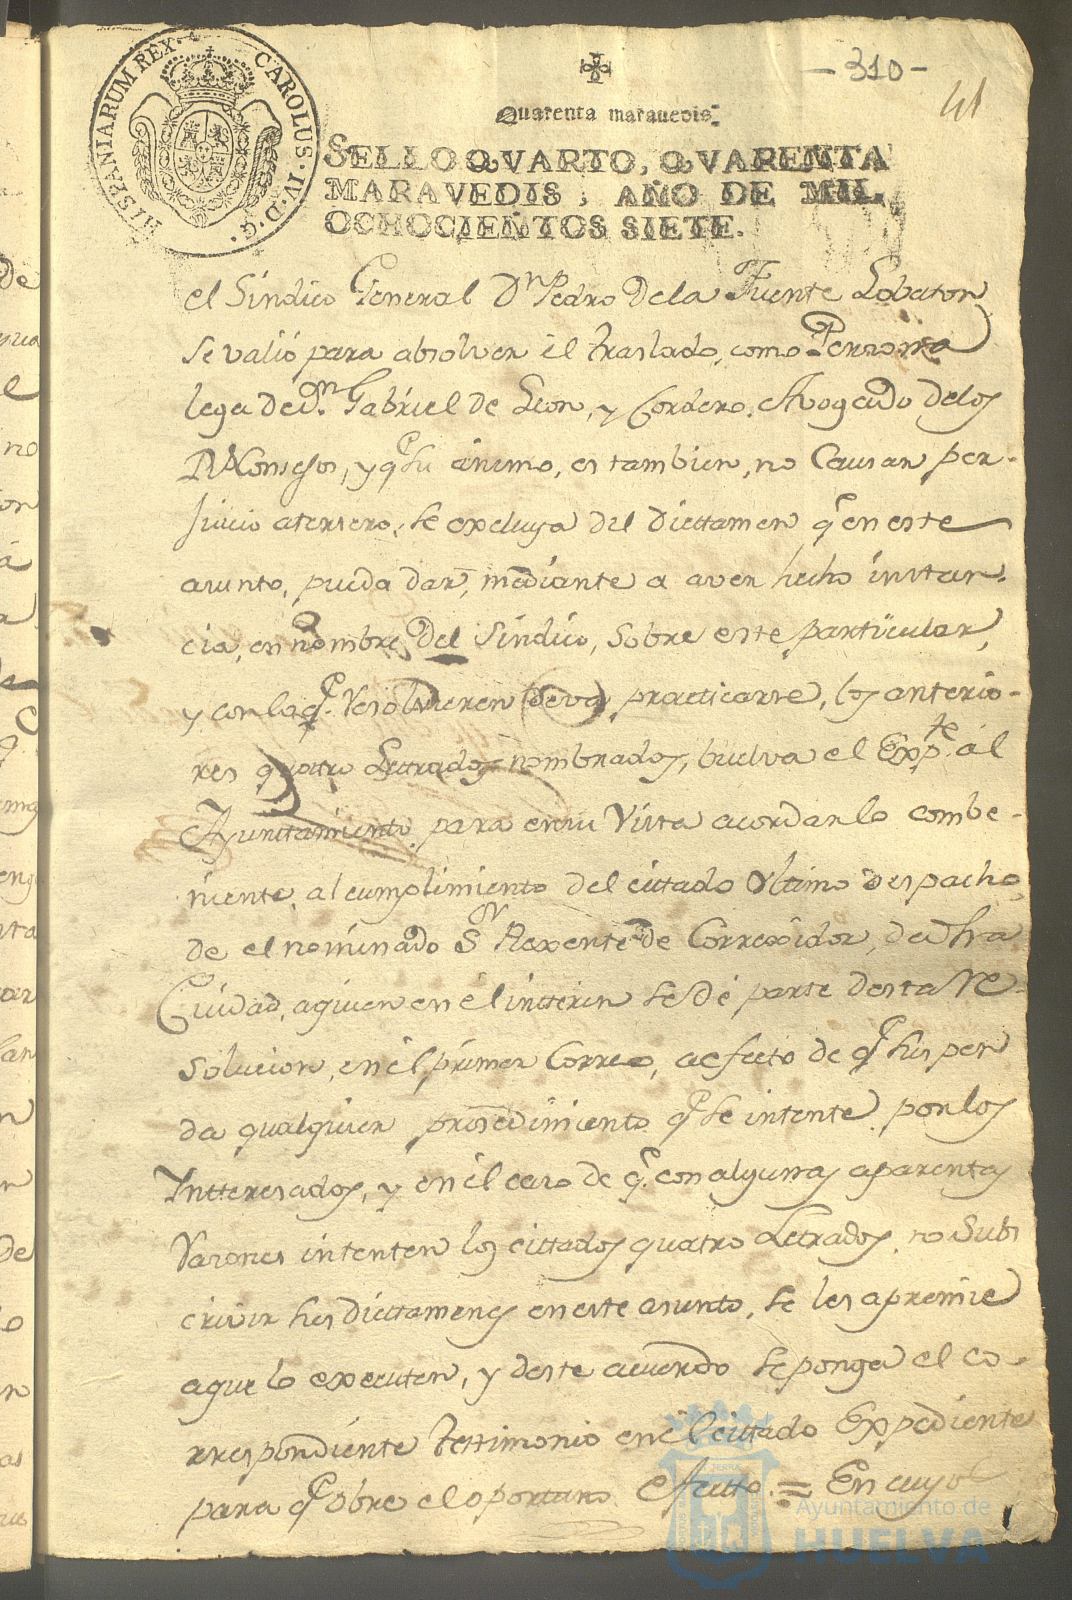 -310-
41
HISPANIARUM REX. CAROLUS. IV. D. G.
Quarenta maravedis.
SELLO QVARTO, QVARENTA
MARAVEDIS, AÑO DE MIL
OCHOCIENTOS SIETE.
el Sindico General Dn Pedro dela Fuente Lobaton
se valió para absolver el traslado, como Perzona
lega de Dn. Gabriel de Leon, y Cordero, Avogado delos
Rs Consejos, y qe su ánimo, es tambien, no Causar per-
juicio atersero, se excluya del Dicttamen qe en este
asunto, pueda dar, mediante a aver hecho instan-
cia, en nombre del Sindico, sobre este particular,
y con lo qe. resolvieren deva practicarse, los anterio-
res quatro Letrados nombrados, buelva el Expte. al
Ayunttamiento para en su Vista acordar lo combe-
niente, al cumplimiento del cittado ultimo despacho
de el nominado Sr Rexente de Correxidor, de dha
Ciudad, aquien en el intterin se dé parte desta re-
solucion, en el primer Correo, aefecto de qe suspen
da qualquier prosedimiento qe se intente por los
Ynteresados, y en el caso de qe. con algunas aparentes
razones intenten los cittados quatro Letrados, no Subs
crivir sus dicttamenes en este asunto, se les apremie
aque lo executen, y deste acuerdo se ponga el co-
rrespondiente testimonio en el cittado Expediente
para qe obre el oportuno efectto = En cuyo
Ayuntamiento de
HUELVA